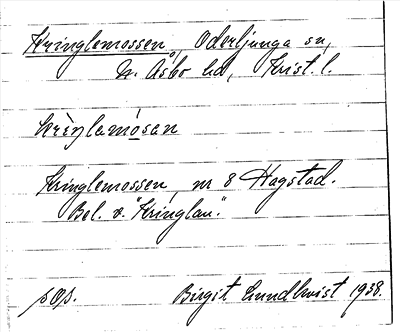 Kringlemossen, Oderljunga sn,
N. Åsbo hd, Krist. l.
Kringlemossen, nr 8 Hagstad.
Bel. v. "Kringlan."
sOp. Birgit Lundkvist 1938.